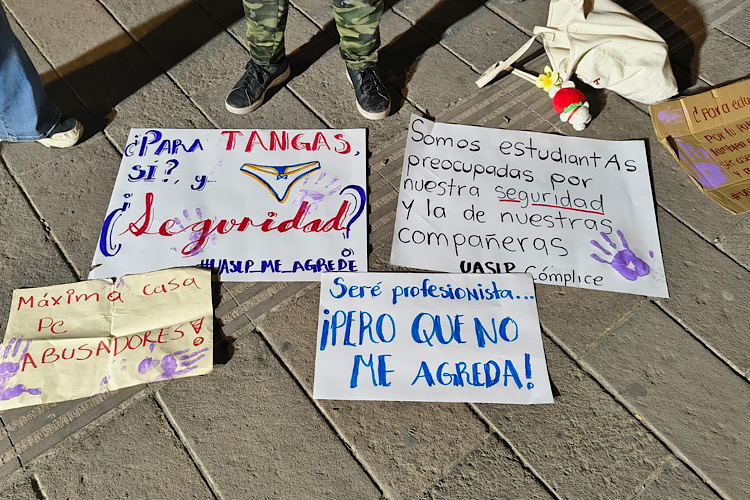 ¿Para TANGAS,
SÍ?, y...
¿Seguridad?
#UASLP_ME_AGREDE
Somos estudiantAs
preocupadas por
nuestra seguridad
y la de nuestras
compañeras
UASLP Cómplice
Máxima casa
De
ABUSADORES!
Seré profesionista...
¡PERO QUE NO
ME AGREDA!
¿Para
Por lo